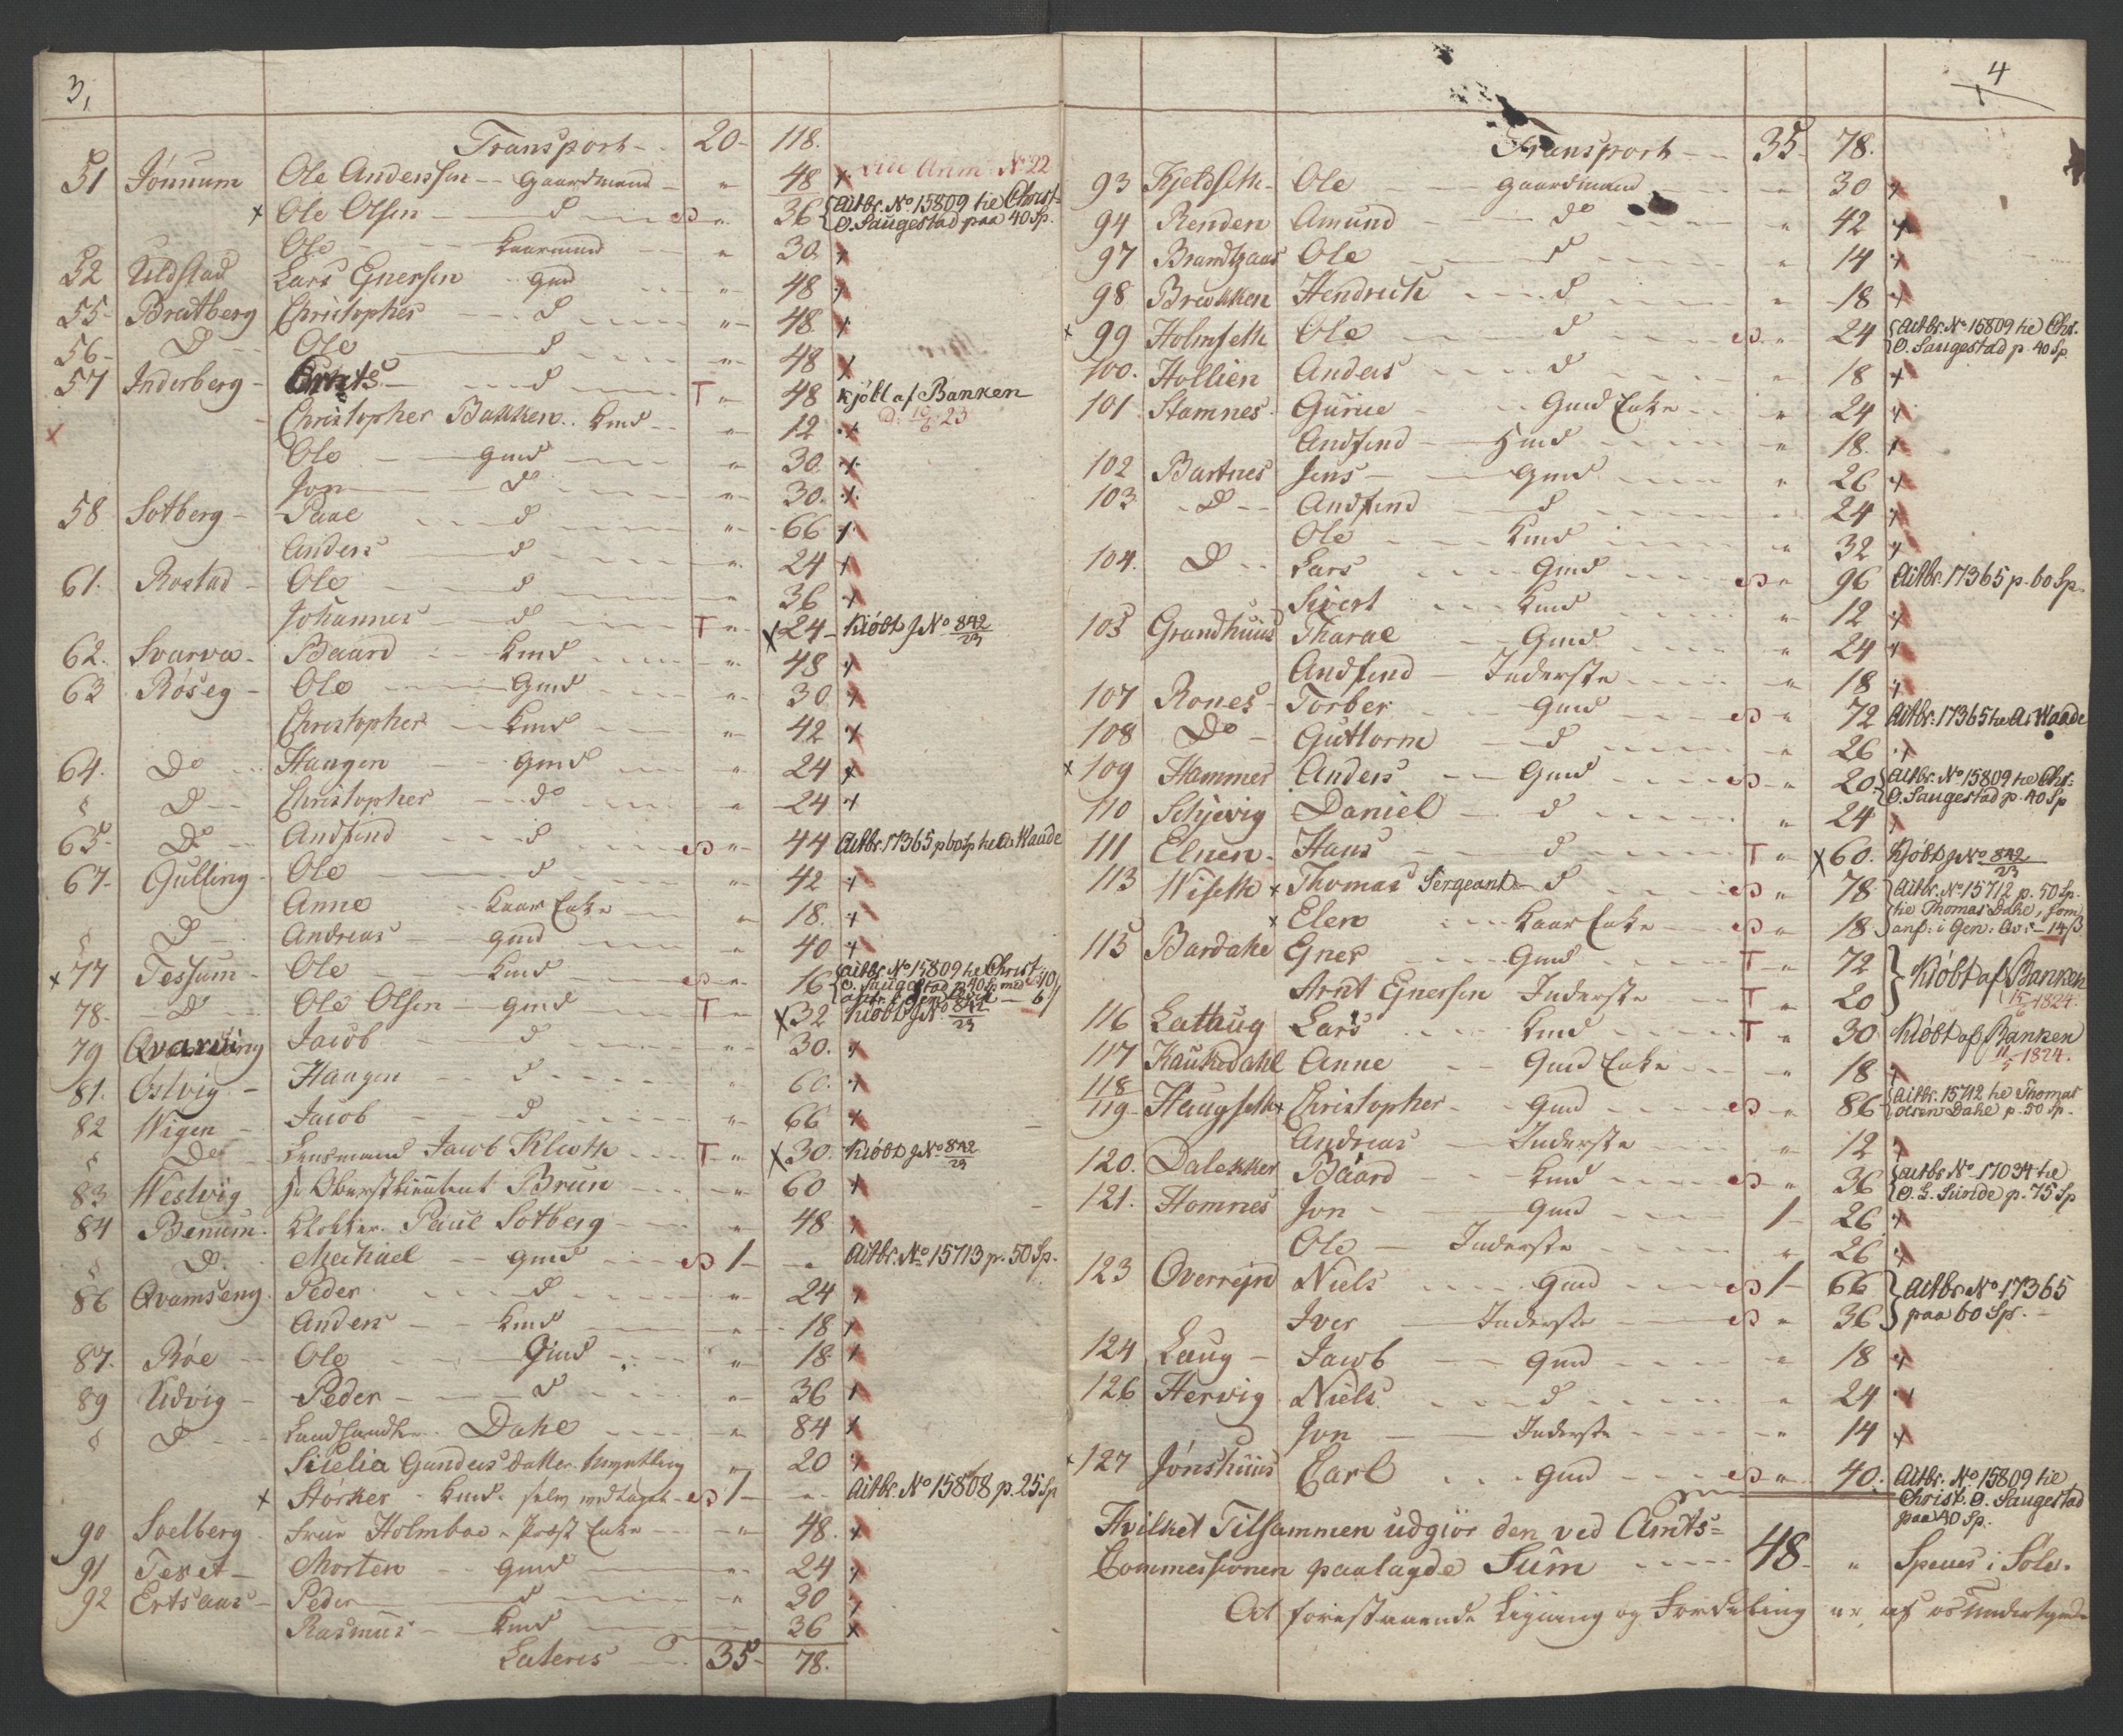 3,
Transport - - 20 - 118.
51 Jönnum Ole Anderssen - Gaardmand - " 48 x Vid Anm: No 22
x Ole Olsen - D - " 36 {Actbr. No 15809 til Christ:
O. Saugestad paa 40 Sp.
Ole - Kaarmand - " 30 x
52 Uldstad Lars Enersen Gmd " 48 x
55 Bratberg Christopher - D - " 48 x
56 D Ole - D - " 48 x
57 Inderberg - - D - T " 48 kjöbt af Banken
x Christopher Bakken. Kmd - " 12 x 23
Ole - Gmd - " 30. x
Jon - D - " 30. x
58 Sotberg - Paul - D - " 66 x
Anders - D - " 24 x
61. Rostad - Ole - D - " 36 x
Johannes - D - T " x 24 - Kiöbt J No 842/23
62. Svarva - Baard - Kmd - " 48 x
63 Röseg - Ole - Gmd - " 30 x
Christopher - Kmd - " 42 x
64. Do Haagen - Gmd - " 24 x
D - Christopher - do - " 24 x
65 Do - Andfind - D - " 44 Actbr. 17365 p 60 Sp til A. Waade
67 Gulling Ole - D - " 42 x
Anne Kaar Enke - " 18. x
D - Andreas - Gmd - " 40 x
x 77 Tessum - Ole - Kmd - " 16 {Actbr. No 15809 til Christ.
O. Saugestad p 40 Sp med
78. - D - Ole Olsen - Gmd T " x 32 Kiöbt J No 842/23
79 Jacob - D - " 30. x
81. Östvig - Haagen - D - " 60. x
82 Wigen - Jacob - D - " 66 x
Do - Lensmand Jacob Kluth - T " x 30. Kiöbt J No 842/23
83 Westvig Hr Oberstlieutent Brun - " 60 x
84 Benum. Klokker. Paul Sotberg - " 48 x
D. Michael - Gmd - 1 - " Actbr. No 15713 p. 50 Sp.
86 Qvamseng. Peder - D - " 24 x
Anders - Kmd - " 18 x
87. Röe - Ole - Gmd - " 18 x
89 Udvig - Peder - D - " 36 x
D - Landhandler. Dahl - " 84 x
Sicelia Gunders datter Myntling " 20 x
x Störker - Kmd. selv modtaget - 1 - " Actbr. No 15808 p. 25 Sp
90 Soelberg Frue Holmboe - Præst Enke - " 48. x
91 - Morten - Gmd - " 24 x
92 Ertsaas - Peder - D - " 30 x
Rasmus - Kmd - " 36 x
Lateris - 35 - 78.
4
Transport - - 35 - 78.
93 Kjeldseth - Ole - Gaardmand - " 30 x
94 Renden Amund - do - " 42 x
97 Brandtzaas Ole - D - " 14 x
98 Brekken Hendrich - D - " 18 x
x 99 Holmseth Ole - D - " 24 {Actbr. No 15809 til Chr.
O. Saugestad p. 40 Sp.
100. Hollien Anders - D - " 18 x
101 Stamnes. Gurine - Gmd Enke - " 24 x
Andfind - Hmd - " 18. x
102 Bartnes Jens - Gmd - " 26 x
103. - D - Andfind - D - " 24 x
Ole - Kmd - " 32 x
104. D - Lars - Gmd - " 96 Actbr. 17365 p. 60 Sp.
Sivert - Kmd - " 12 x
105 Grandhuus Tharal - Gmd - " 24 x
Andfind - Inderste - " 18 x
107 Rones - Torber - Gmd - " 72 Actbr. 17365 til A. Waade
108 Do - Guttorm - D - " 26 x
x 109 Hammer Anders - Gmd - " 20 {Actbr. No 15809 til Chr.
O. Saugestad p. 40 Sp
110 Schjevig Daniel - D - " 24 x
111 Elnen. Hans - D - T " x 60. Kjöbt J No 842/23
113 Wiseth x Thomas Sergeant - D - " 78 Actbr. No 15712 p. 50 Sp.
til Thomas Dahl, som
x Elen - Kaar Enke - " 18. anf: i Gen: Qv: - 14 β
115 Bardahl Ener - Gmd - T " 72 } Kiöbt af Banken
Arnt Enersen Inderste - T " 20 1824.
116 Lathug Lars - Kmd - T " 30 Kiöbt af Banken
117 Kaukedahl Anne - Gmd Enke - " 18 x 1824.
118
119 Haugseth x Christopher - Gmd - " 86 {Actbr. 15712 til Thomas
Olsen Dahl p. 50 Sp.
Andreas - Inderste " 12 x
120. Dalekker Baard - Kmd - " 36 {Actbr No 17034 til
O. G. Sunde p. 75 Sp
121. Homnes Jon - Gmd - 1 - 26 x
Ole - Inderste - " 26 x
123 Overrein Niels - Gmd - 1 - 66 } Actbr No 17365
Iver - Inderste - " 36 paa 60 Sp. -
124 Laug - Jacob - Gmd - " 18 x
126 Hervig Niels - D - " 24 x
Jon - Inderste - " 14 x
x 127 Jönshuus Carl - Gmd - " 40. Actbr. No 15809 til
Christ. O. Saugestad
paa 40 Sp.
Hvilket Tilsammen udgiör den ved Amts-
Commissionen paalagde Sum - 48 - " Specier i Sölv.
At forestaaende Ligning og Fordeling er af os Undertegnede